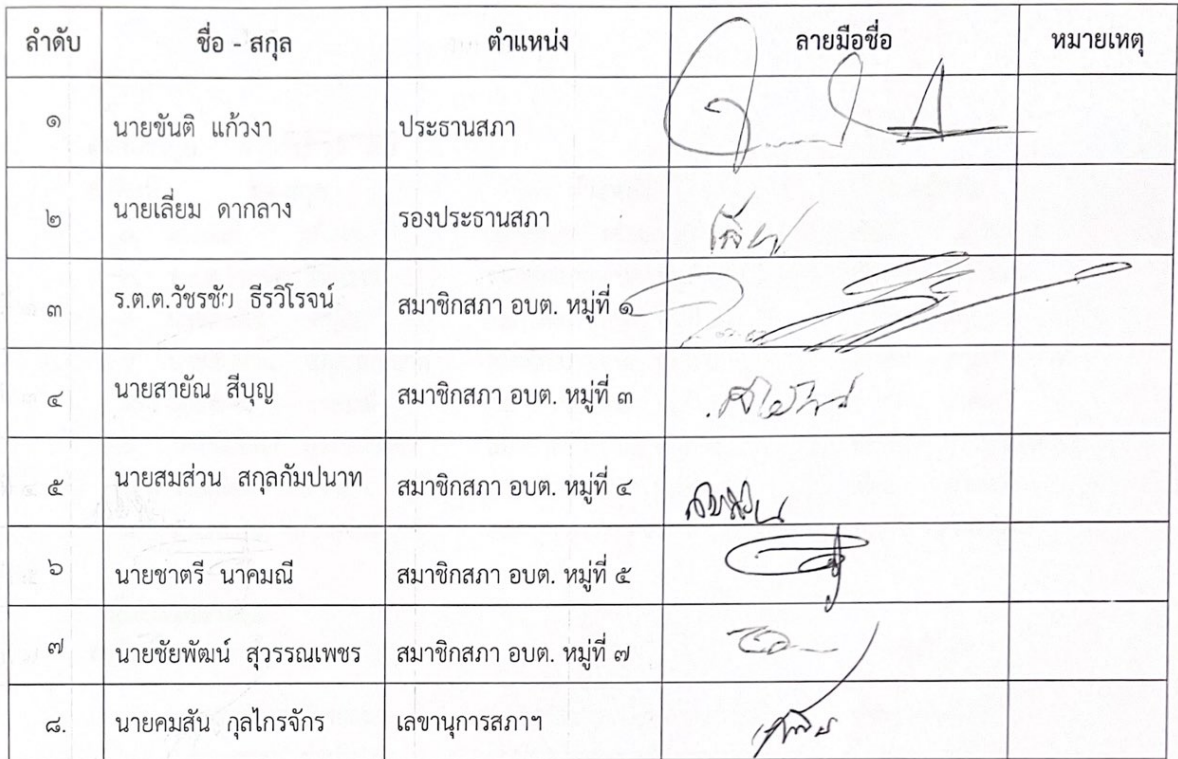 ลำดับ ชื่อ - สกุล ตำแหน่ง ลายมือชื่อ หมายเหตุ
๑ นายขันติ แก้วงา ประธานสภา
๒ นายเลี่ยม ดากลาง รองประธานสภา
๓ ร.ต.ต.วัชรชัย ธีรวิโรจน์ สมาชิกสภา อบต. หมู่ที่ ๑
๔ นายสายัณ สีบุญ สมาชิกสภา อบต. หมู่ที่ ๓
๕ นายสมส่วน สกุลกัมปนาท สมาชิกสภา อบต. หมู่ที่ ๔
๖ นายชาตรี นาคมณี สมาชิกสภา อบต. หมู่ที่ ๕
๗ นายชัยพัฒน์ สุวรรณเพชร สมาชิกสภา อบต. หมู่ที่ ๗
๘. นายคมสัน กุลไกรจักร เลขานุการสภาฯ